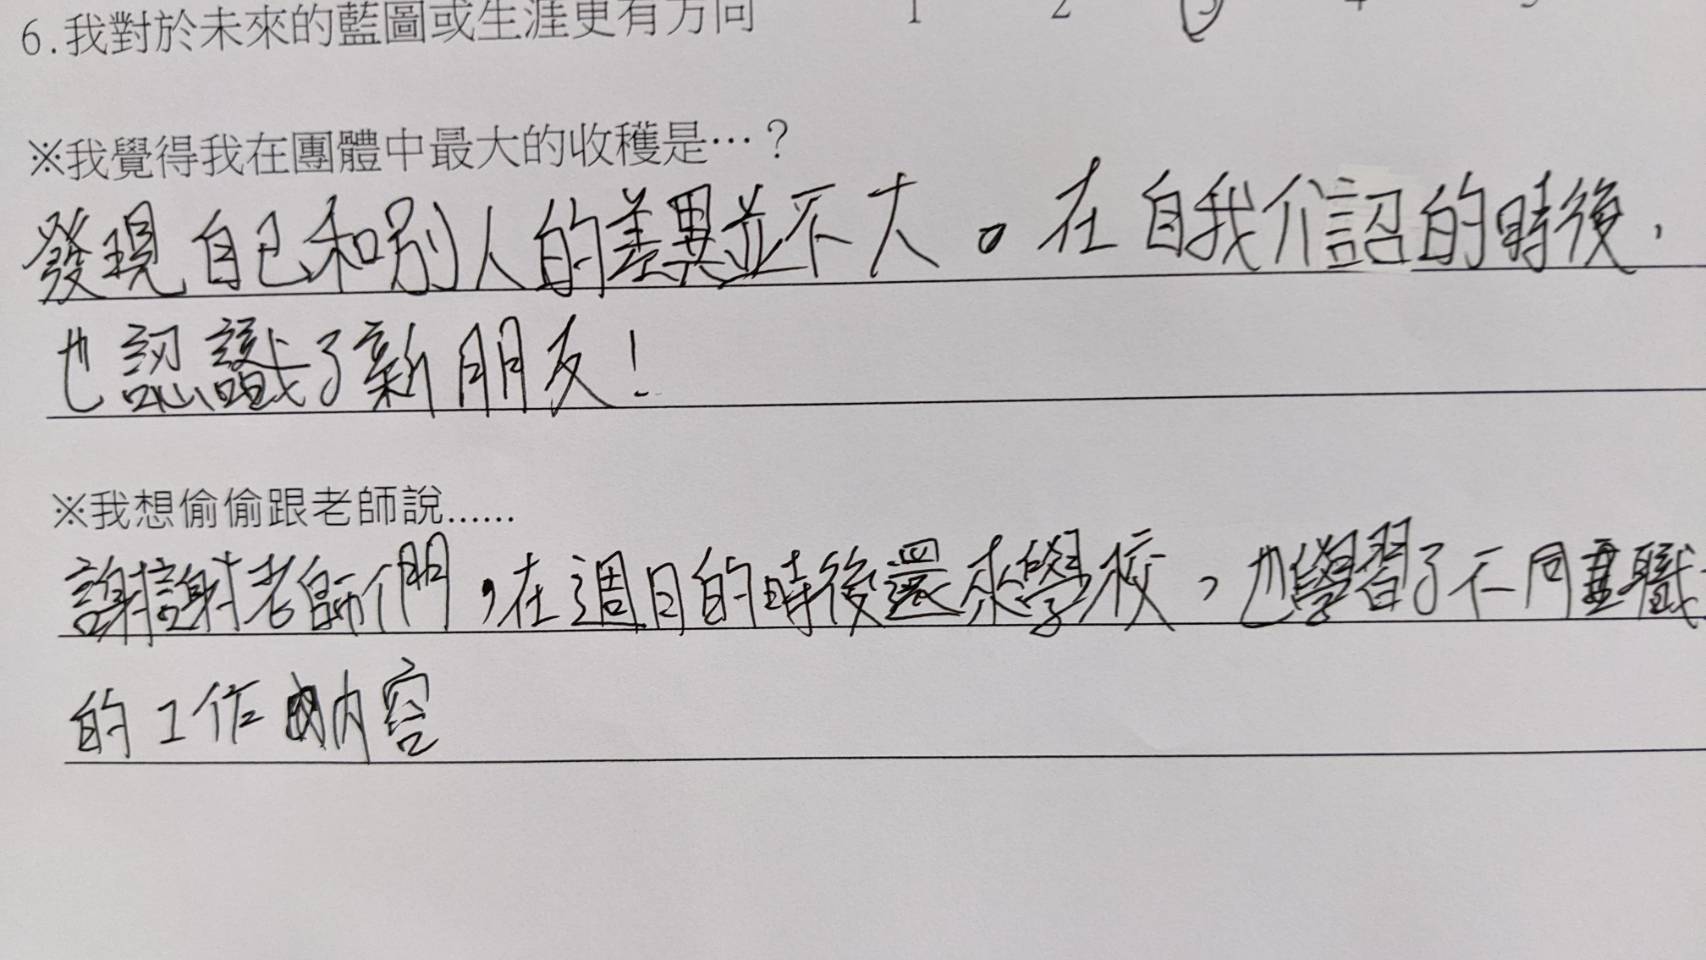 6.我對於未來的藍圖或生涯更有方向 1 2 3 4 5
※我覺得我在團體中最大的收穫是…？
發現自己和別人的差異並不大。在自我介詔的時後,
也認識了新朋友！
※我想偷偷跟老師說......
謝謝老師們，在週日的時後還來學校，也學習了不同職
的工作內容